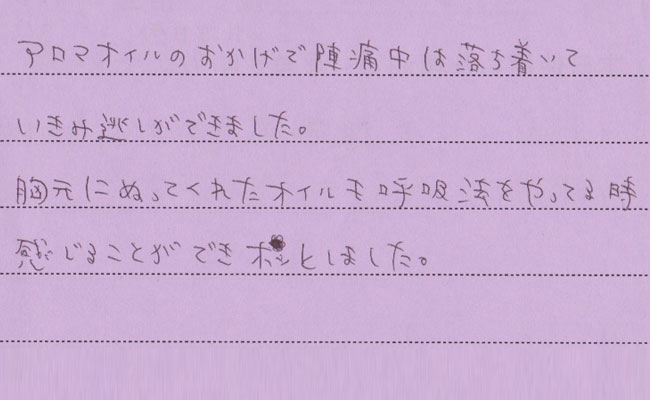 アロマオイルのおかげで陣痛中は落ち着いて
いきみ逃しができました。
胸元にぬってくれたオイルも呼吸法をやってる時
感じることができホッとしました。